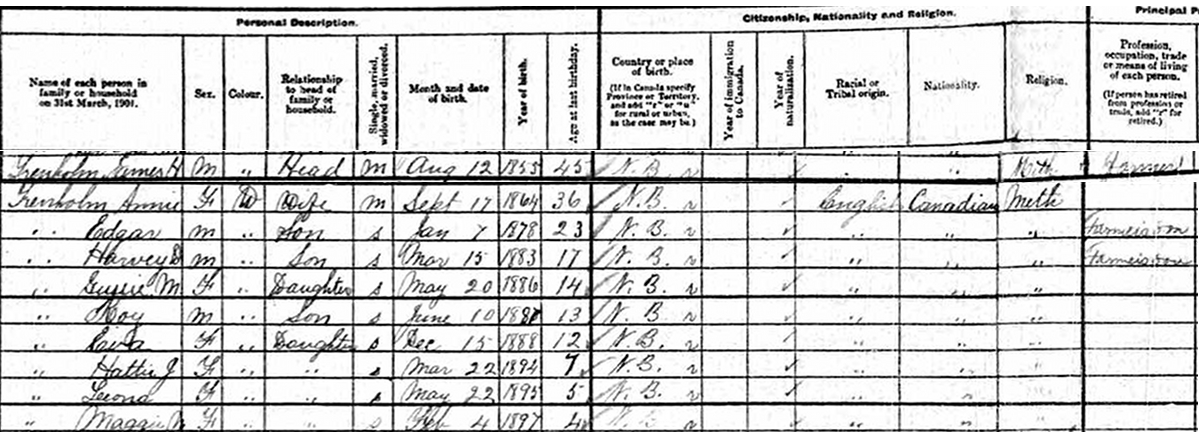 Personal Description. Citizenship, Nationality and Religion. Principal P
Name of each person in family or household on 31st March, 1901. Sex. Colour. Relationship to head of family or household. Single, married, widowed or divorced. Month and date of birth. Year of birth. Age at last birthday. Country or place of birth. (If in Canada specify Province or Territory, and add "r" or "u" for rural or urban, as the case may be.) Year of immigration to Canada. Year of naturalization. Racial or Tribal origin. Nationality. Religion. Profession, occupation, trade or means of living of each person. (If person has retired from profession or trade, add "r" for retired.)
Trenholm James H M " Head m Aug 12 1855 45 N.B. r ✓ " " Meth Farmer
Trenholm Annie F W Wife m Sept 17 1864 36 N.B. r ✓ English Canadian Meth
" Edgar m " Son s Jan 7 1878 23 N.B. r ✓ " " " Farmer's son
" Harvey m " Son s Mar 15 1883 17 N.B. r ✓ " " " Farmer's son
" M F " Daughter s May 20 1886 14 N.B. r ✓ " " "
" Roy m " Son s June 10 13 N.B. r ✓ " " "
" F " Daughter s Dec 15 1888 12 N.B. r ✓ " " "
" Hattie J F " " s Mar 22 1894 7 N.B. r ✓ " " "
" Leona F " " s May 22 1895 5 N.B. r ✓ " " "
" Maggie F " " s Feb 4 1897 4 N.B. r ✓ " " "